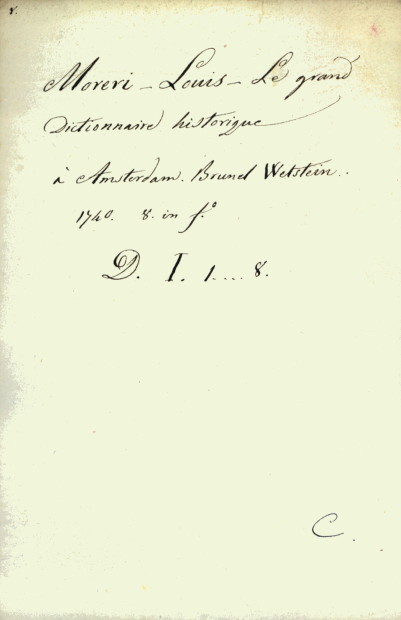 Moreri - Louis - Le grand
Dictionnaire historique
à Amsterdam. Brunel Wetstein..
1740. 8. in f.º
D. I. 1....8.
C.